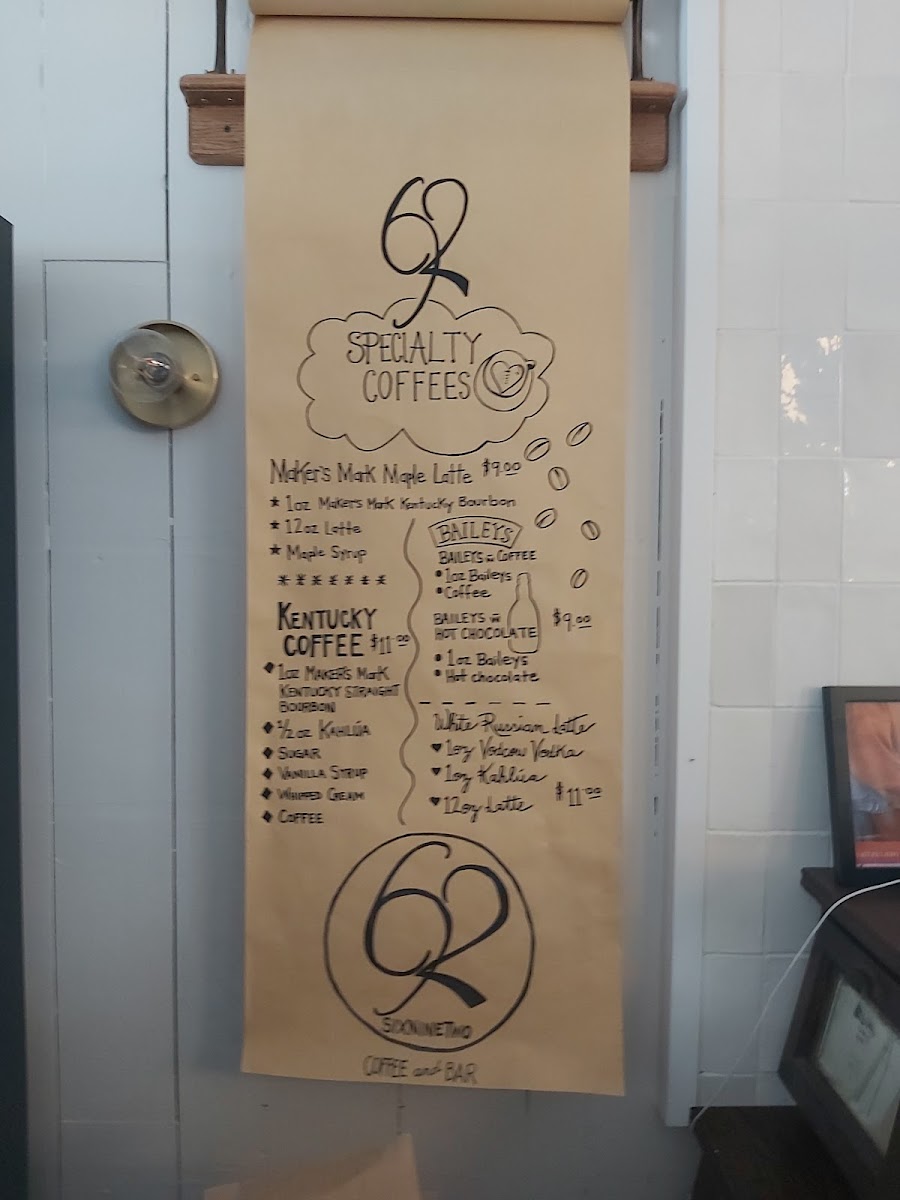 692
SPECIALTY
COFFEES
Maker's Mark Maple Latte $9.00
★ 1oz Maker's Mark Kentucky Bourbon
★ 12oz Latte
★ Maple Syrup
* * * * * * *
KENTUCKY
COFFEE $11.00
◆ 1oz MAKER'S MARK
KENTUCKY STRAIGHT
BOURBON
◆ 1/2 oz KAHLÚA
◆ SUGAR
◆ VANILLA SYRUP
◆ WHIPPED CREAM
◆ COFFEE
BAILEYS
BAILEYS in COFFEE
• 1oz Baileys
• Coffee
BAILEYS in $9.00
HOT CHOCOLATE
• 1oz Baileys
• Hot chocolate
White Russian Latte
♥ 1oz Vodcow Vodka
♥ 1oz Kahlúa
♥ 12oz Latte $11.00
692
SIXNINETWO
COFFEE and BAR